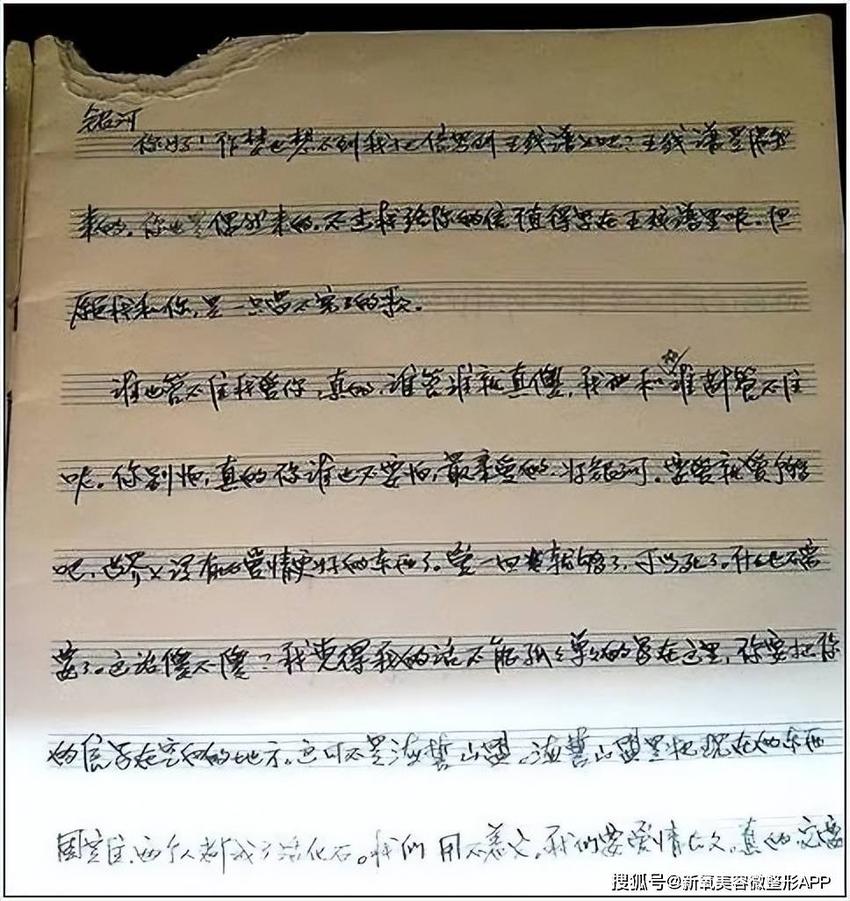 银河
你好！作梦也想不到我把信写到五线谱上吧？五线谱是偶然
来的，你也是偶然来的。不过我给你的信值得写在五线谱里呢。但
愿我和你，是一只唱不完的歌。
谁也管不住我爱你，真的，谁管谁就真傻，我和你谁都管不住
呢。你别怕，真的你谁也不要怕，最亲爱的好银河，要爱就爱个够
吧，世界上没有比爱情更好的东西了。爱一回就够了，可以死了。什么也不需
要了。这话傻不傻？我觉得我的话不能孤孤单单的写在这里，你要把你
的信写在空白的地方。这可不是海誓山盟。海誓山盟是把现在的东西
固定住，两个人都成了活化石。我们用不着它，我们要爱情长久。真的它要
搜狐号@新氧美容微整形APP